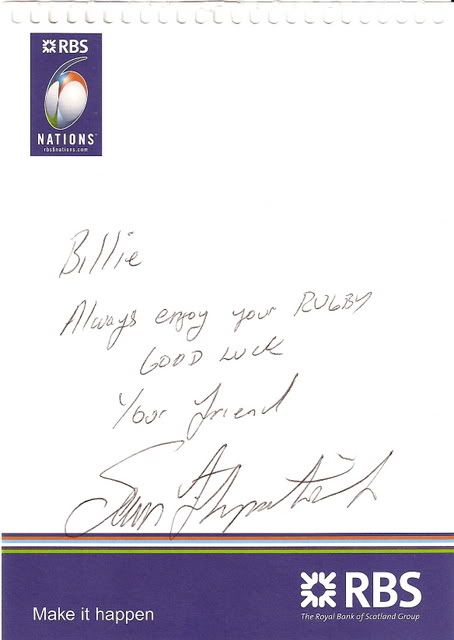 RBS
6
NATIONS™
rbs6nations.com
Billie
Always enjoy your RUGBY
GOOD LUCK
Your friend
Sean Fitzpatrick
RBS
The Royal Bank of Scotland Group
Make it happen